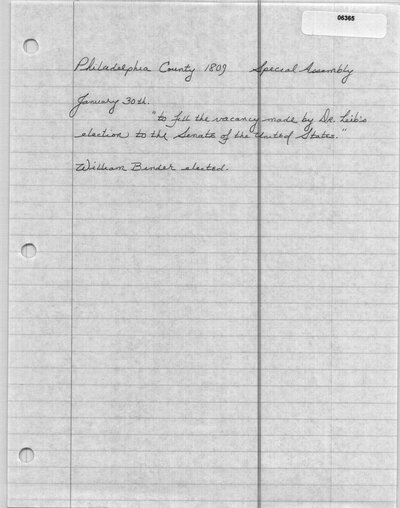 06365
Philadelphia County 1809 Special Assembly
January 30th.
"to fill the vacancy made by Dr. Leib's
election to the Senate of the United States."
William Binder elected.